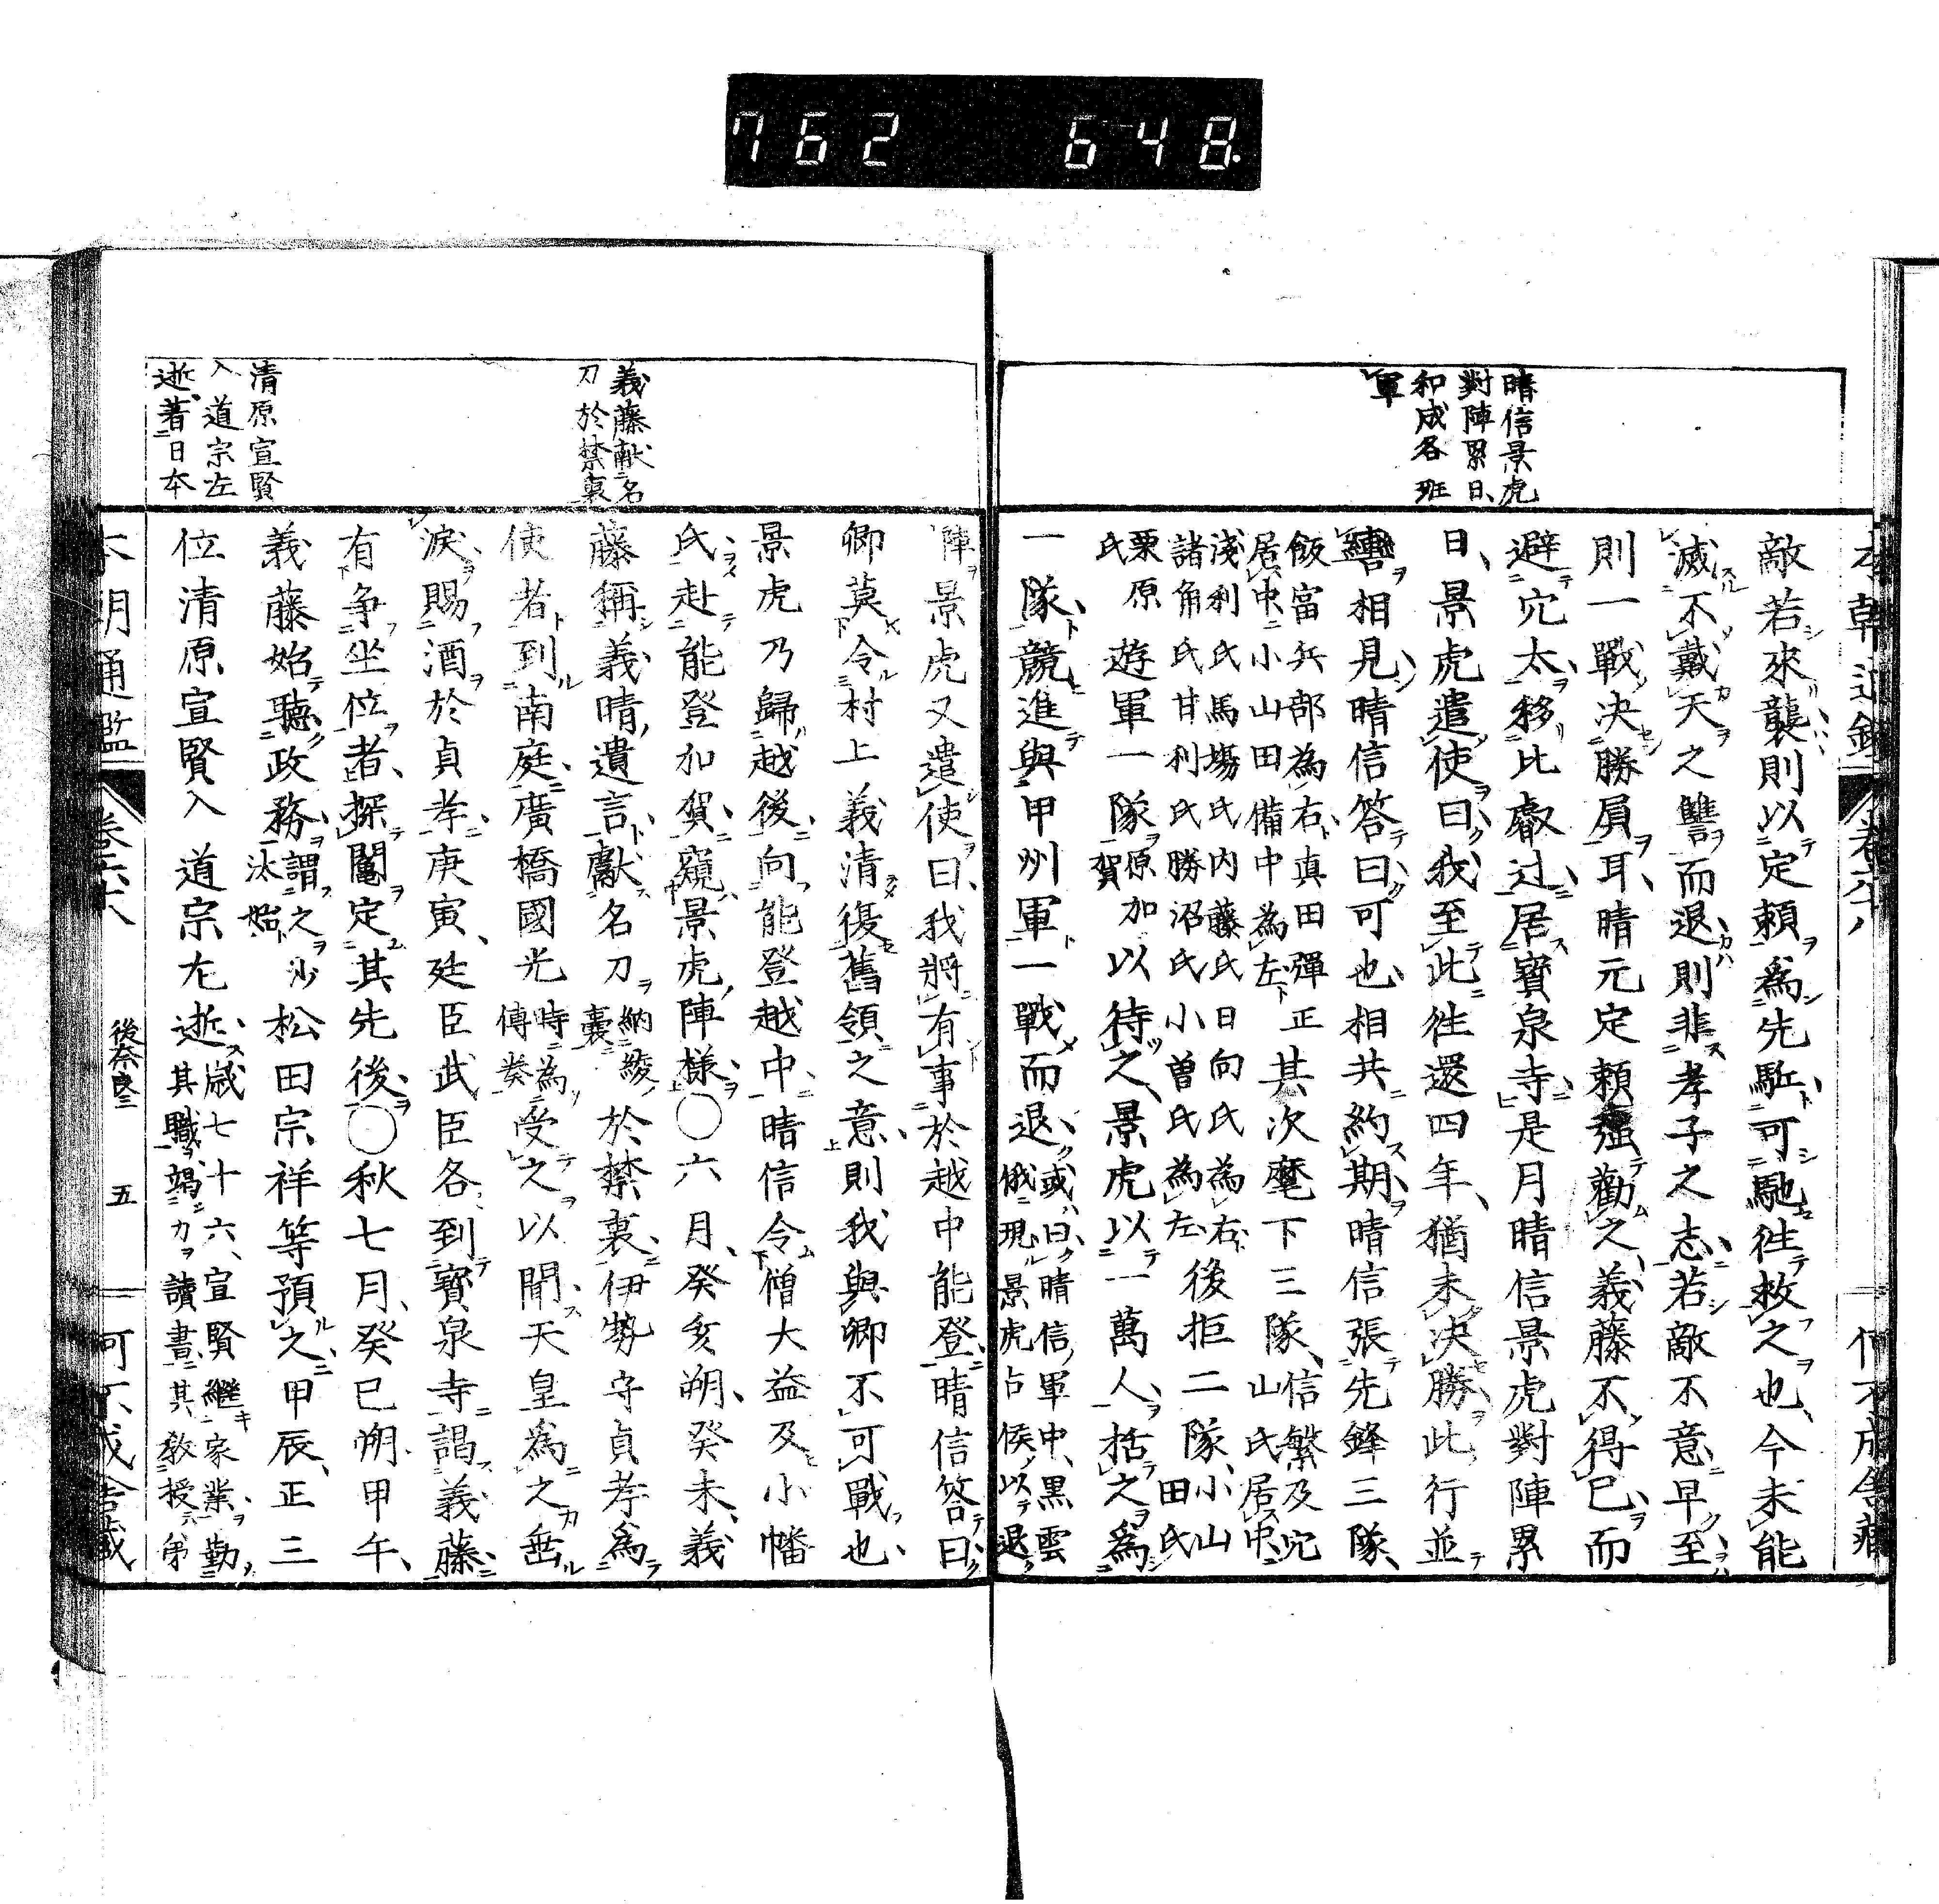 762 648.
晴信景虎
對陣累日、
和成各班
軍
敵若來襲則以定賴爲先駈可馳徃救之也、今未能
滅不戴天之讐而退則非孝子之志若敵不意早至
則一戰决勝負耳、晴元定賴強勸之、義藤不得已而
避穴太移比叡辻居寳泉寺是月晴信景虎對陣累
日、景虎遣使曰我至此徃還四年、猶未决勝此行並
轡相見晴信答曰可也相共約期晴信張先鋒三隊、
飯富兵部為右真田彈正
居中小山田備中為左
其次麾下三隊、
信繁及穴
山氏居中
淺利氏馬塲氏内藤氏日向氏為右
諸角氏甘利氏勝沼氏小曽氏為左
後拒二隊、
小山
田氏
栗原
氏
遊軍一隊
原加
賀
以待之、景虎以一萬人括之爲
一隊競進與甲州軍一戰而退
或曰晴信軍中、黒雲
俄現景虎占候以退
義藤献名
刀於禁裏
清原宣賢
入道宗左
逝、著日本
陣景虎又遣使曰、我將有事於越中能登晴信答曰
卿莫令村上義清復舊領之意、則我與卿不可戰也、
景虎乃歸越後向能登越中晴信令僧大益及小幡
氏赴能登加賀窺景虎陣樣○六月、癸亥朔、癸未、義
藤稱義晴遺言獻名刀
納綾
嚢
於禁裏伊勢守貞孝爲
使者到南庭廣橋國光
時為
傳奏
受之以聞天皇爲之垂
淚賜酒於貞孝庚寅、廷臣武臣各到寳泉寺謁義藤
有争坐位者探鬮定其先後○秋七月、癸巳朔甲午、
義藤始聽政務
謂之沙
汰始
松田宗祥等預之甲辰、正三
位清原宣賢入道宗尤逝
歳七十六、宣賢繼家業勤
其職竭力讀書其教授弟
本朝通鑑
卷六十八
後奈良三
五